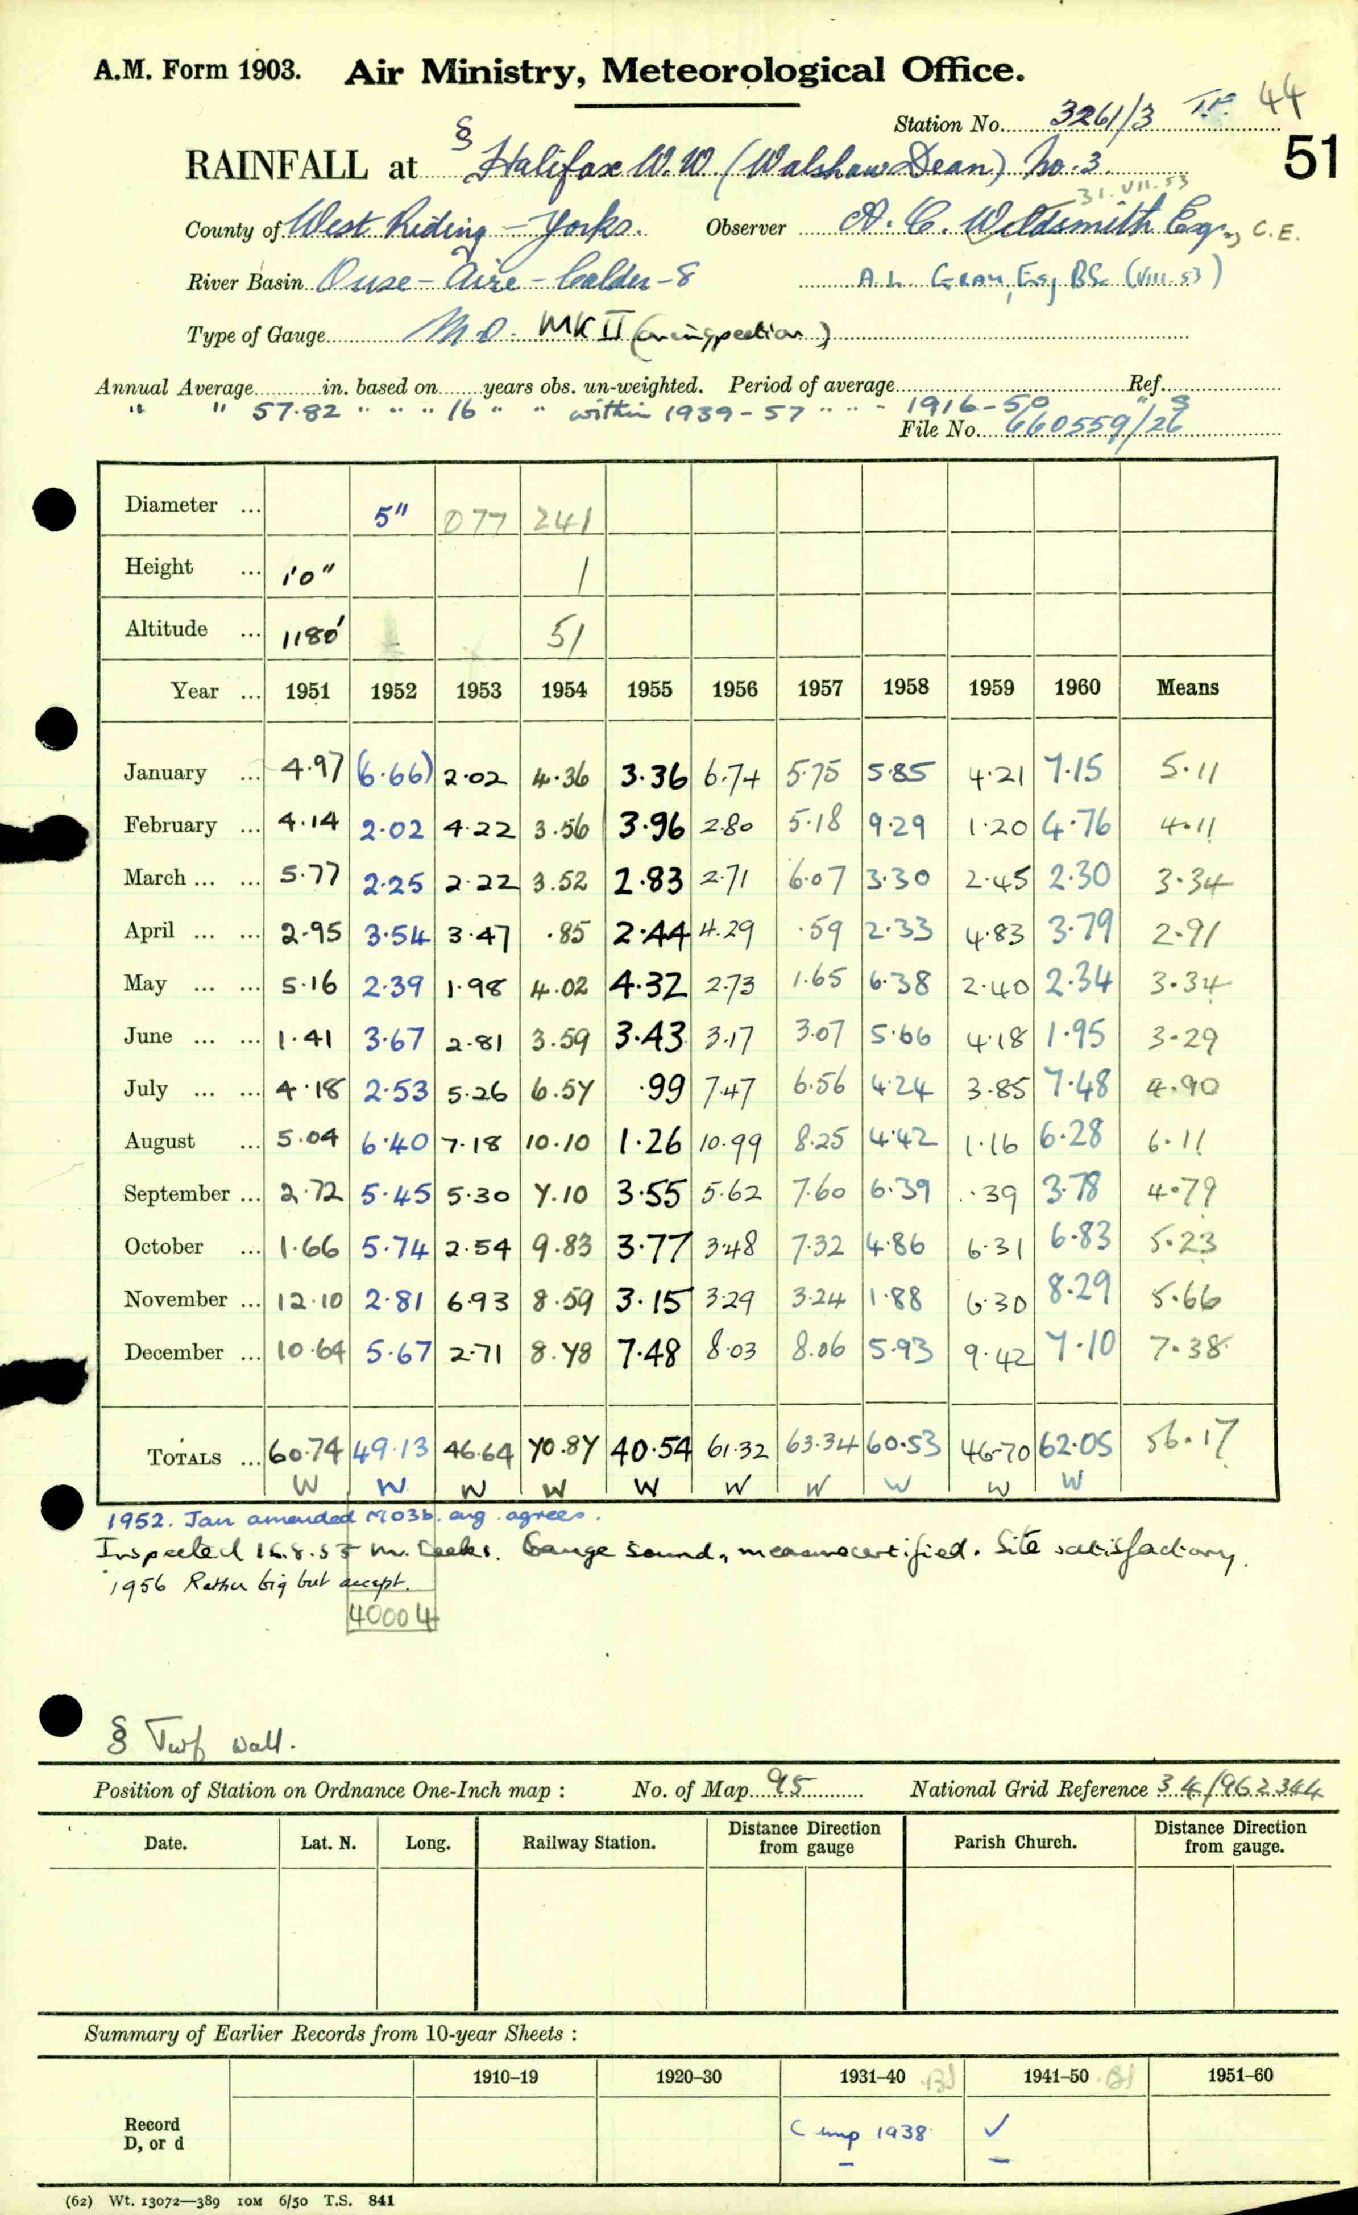 A.M. Form 1903. Air Ministry, Meteorological Office.
Station No. 3261/3 44
51
RAINFALL at § Halifax W.W (Walshaw Dean) No. 3.
31.VII.53
County of West Riding - Yorks. Observer A. C. Wildsmith Esq., C.E.
River Basin Ouse - Aire - Calder - 8 A.L. Esq BSc (VIII.53)
Type of Gauge M.O. MK II (on inspection)
Annual Average in. based on years obs. un-weighted. Period of average Ref.
" " 57.82 " " " 16 " " within 1939-57 " " - 1916-50 " S
File No. 660559/26
Diameter ... 5" 077 241
Height ... 1'0" 1
Altitude ... 1180' 51
Year ... 1951 1952 1953 1954 1955 1956 1957 1958 1959 1960 Means
January ... 4.97 (6.66) 2.02 4.36 3.36 6.74 5.75 5.85 4.21 7.15 5.11
February ... 4.14 2.02 4.22 3.56 3.96 2.80 5.18 9.29 1.20 4.76 4.11
March ... ... 5.77 2.25 2.22 3.52 2.83 2.71 6.07 3.30 2.45 2.30 3.34
April ... ... 2.95 3.54 3.47 .85 2.44 4.29 .59 2.33 4.83 3.79 2.91
May ... ... 5.16 2.39 1.98 4.02 4.32 2.73 1.65 6.38 2.40 2.34 3.34
June ... ... 1.41 3.67 2.81 3.59 3.43 3.17 3.07 5.66 4.18 1.95 3.29
July ... ... 4.18 2.53 5.26 6.57 .99 7.47 6.56 4.24 3.85 7.48 4.90
August ... 5.04 6.40 7.18 10.10 1.26 10.99 8.25 4.42 1.16 6.28 6.11
September ... 2.72 5.45 5.30 7.10 3.55 5.62 7.60 6.39 .39 3.78 4.79
October ... 1.66 5.74 2.54 9.83 3.77 3.48 7.32 4.86 6.31 6.83 5.23
November ... 12.10 2.81 6.93 8.59 3.15 3.29 3.24 1.88 6.30 8.29 5.66
December ... 10.64 5.67 2.71 8.78 7.48 8.03 8.06 5.93 9.42 7.10 7.38
TOTALS ... 60.74 49.13 46.64 70.87 40.54 61.32 63.34 60.53 46.70 62.05 56.17
W W W W W W W W W W
1952. Jan amended MO3b. ang. agrees.
Inspected 16.8.55 Mr. Gauge sound, measure certified. Site satisfactory.
1956 Rather big but accept.
40004
§ Turf wall.
Position of Station on Ordnance One-Inch map : No. of Map 95 National Grid Reference 34/962344
Date. Lat. N. Long. Railway Station. Distance Direction from gauge Parish Church. Distance Direction from gauge.
Summary of Earlier Records from 10-year Sheets :
1910-19 1920-30 1931-40 1941-50 1951-60
Record D, or d
C 1938 ✓
(62) Wt. 13072—389 10M 6/50 T.S. 841